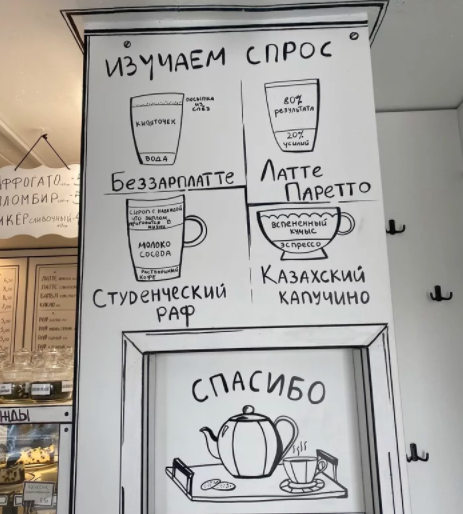 ИЗУЧАЕМ СПРОС
ПОСЫПКА
ИЗ
СЛЁЗ
КИПЯТОЧЕК
ВОДА
БЕЗЗАРПЛАТТЕ
80%
РЕЗУЛЬТАТА
20%
УСИЛИЙ
ЛАТТЕ
ПАРЕТТО
СИРОП С НАДЕЖДОЙ
ЧТО ДИПЛОМ
ПРИГОДИТСЯ В
ЖИЗНИ
МОЛОКО
СОСЕДА
РАСТВОРИМЫЙ
КОФЕ
СТУДЕНЧЕСКИЙ
РАФ
ВСПЕНЕННЫЙ
КУМЫС
ЭСПРЕССО
КАЗАХСКИЙ
КАПУЧИНО
СПАСИБО
ФФОГАТО
ПЛОМБИР
ИКЕР СЛИВОЧНЫЙ